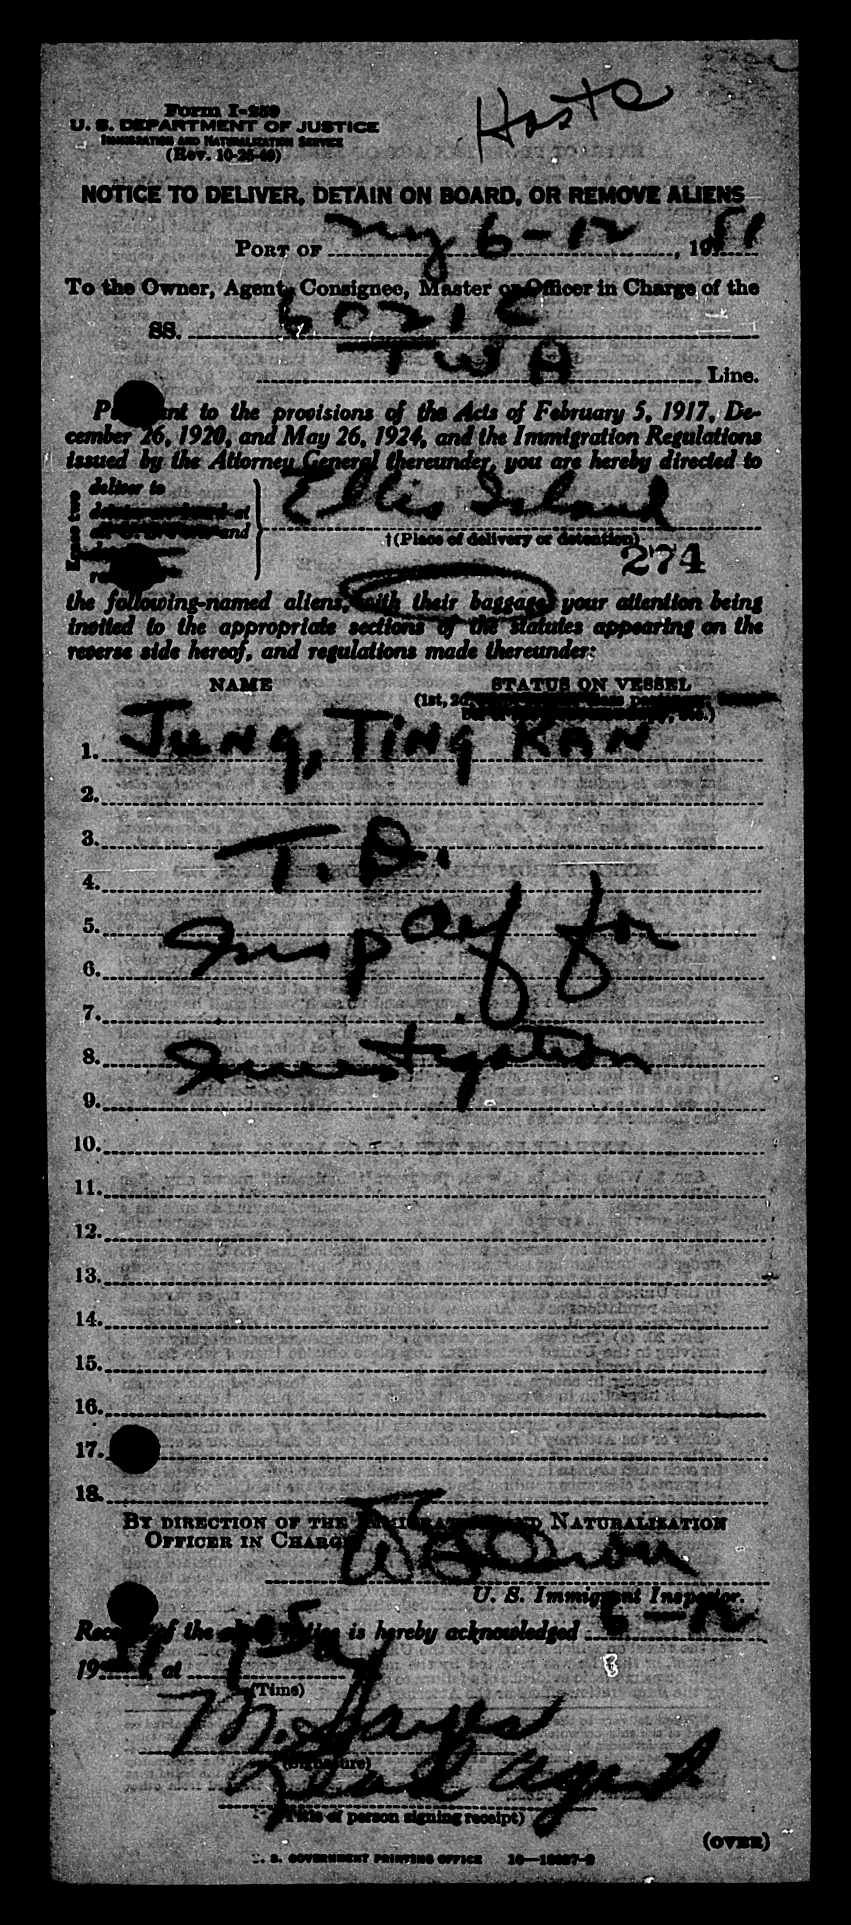 Hosts
Form I-259
U. S. DEPARTMENT OF JUSTICE
IMMIGRATION AND NATURALIZATION SERVICE
(Rev. 10-25-49)
NOTICE TO DELIVER, DETAIN ON BOARD, OR REMOVE ALIENS
PORT OF ny 6-12, 1951
To the Owner, Agent, Consignee, Master or Officer in Charge of the
SS. 6021C
TWA Line.
Pursuant to the provisions of the Acts of February 5, 1917, De-
cember 26, 1920, and May 26, 1924, and the Immigration Regulations
issued by the Attorney General thereunder, you are hereby directed to
Erase two
deliver to
at
and
Ellis Island
†(Place of delivery or detention)
274
the following-named aliens, with their baggage, your attention being
invited to the appropriate sections of the statutes appearing on the
reverse side hereof, and regulations made thereunder:
NAME STATUS ON VESSEL
(1st, 2d
etc.)
1. Jung, Ting Kan
2.
3. T. D.
4.
5. Insp def for
6.
7.
8. Investigation
9.
10.
11.
12.
13.
14.
15.
16.
17.
18.
BY DIRECTION OF THE IMMIGRATION AND NATURALIZATION
OFFICER IN CHARGE
U. S. Immigrant Inspector.
Receipt of the above notice is hereby acknowledged 6-12,
1951, at
(Time)
M. Hayes
(Signature)
Lead Agent
(Title of person signing receipt)
(OVER)
U. S. GOVERNMENT PRINTING OFFICE 16—13827-2